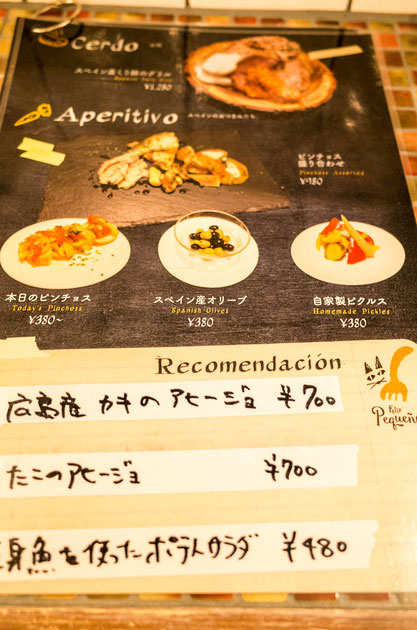 Cerdo
スペイン産くり豚のグリル
¥1,280
Aperitivo
スペインの前つまみたち
ピンチョス
盛り合わせ
Pinchoss Assorted
¥980
本日のピンチョス
Today's Pinchoss
¥380~
スペイン産オリーブ
Spanish Olives
¥380
自家製ピクルス
Homemade Pickles
¥380
Recomendación
広島産 カキのアヒージョ ¥700
たこのアヒージョ ¥700
身魚を使ったポテトサラダ ¥480
Petit
Pequeñ